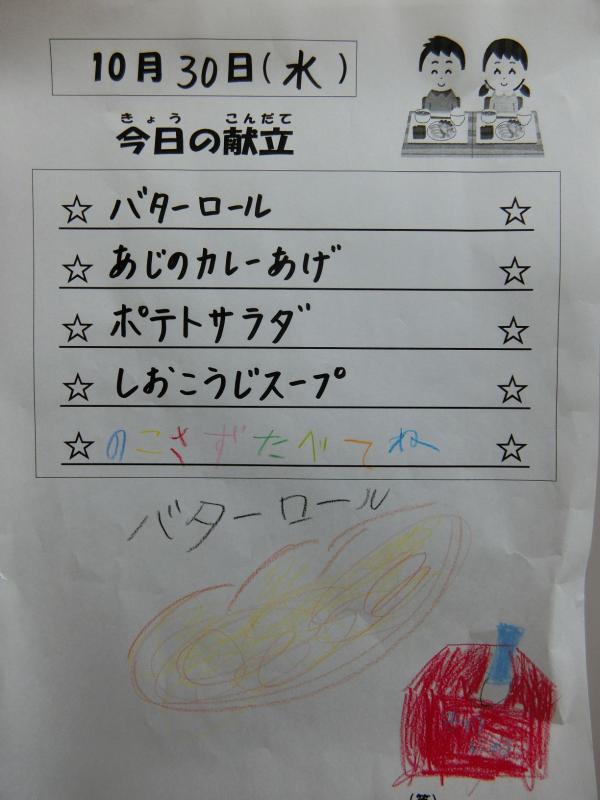 10月30日(水)
きょう こんだて
今日の献立
☆ バターロール ☆
☆ あじのカレーあげ ☆
☆ ポテトサラダ ☆
☆ しおこうじスープ ☆
☆ のこさずたべてね ☆
バターロール